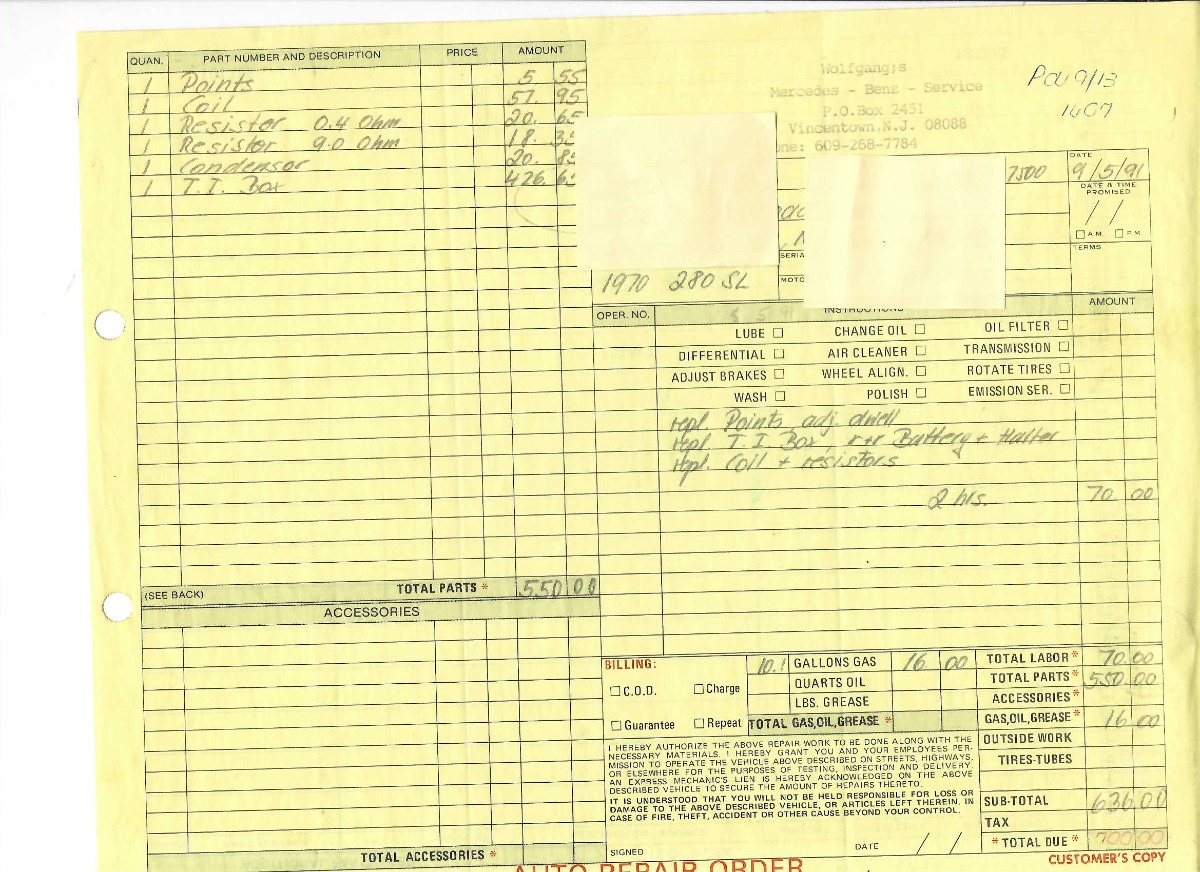 QUAN. PART NUMBER AND DESCRIPTION PRICE AMOUNT
1 Points 5 55
1 Coil 57. 95
1 Resister 0.4 Ohm 20. 65
1 Resistor 9.0 Ohm 18. 35
1 Condensor 20. 8
1 T.I. Box 426. 6
(SEE BACK) TOTAL PARTS * 550.00
ACCESSORIES
TOTAL ACCESSORIES *
Wolfgang;s
Mercedes - Benz - Service
P.O.Box 2451
Vincentown,N.J. 08088
one: 609-268-7784
Pd 9/13
1607
7500
DATE
9/5/91
DATE & TIME
PROMISED
/ /
☐ A.M. ☐ P.M.
TERMS
SERIA
MOTO
1970 280 SL
OPER. NO. INSTRUCTIONS AMOUNT
LUBE ☐ CHANGE OIL ☐ OIL FILTER ☐
DIFFERENTIAL ☐ AIR CLEANER ☐ TRANSMISSION ☐
ADJUST BRAKES ☐ WHEEL ALIGN. ☐ ROTATE TIRES ☐
WASH ☐ POLISH ☐ EMISSION SER. ☐
repl. Points adj. dwell
repl T.I Box, r+r Battery + Halter
repl. Coil + resistors
2 hrs. 70.00
BILLING:
☐ C.O.D. ☐ Charge
☐ Guarantee ☐ Repeat
10.1 GALLONS GAS 16. 00
QUARTS OIL
LBS. GREASE
TOTAL GAS,OIL,GREASE *
TOTAL LABOR * 70.00
TOTAL PARTS * 550.00
ACCESSORIES *
GAS,OIL,GREASE * 16.00
OUTSIDE WORK
TIRES-TUBES
SUB-TOTAL 636.00
TAX
* TOTAL DUE * 700.00
I HEREBY AUTHORIZE THE ABOVE REPAIR WORK TO BE DONE ALONG WITH THE
NECESSARY MATERIALS. I HEREBY GRANT YOU AND YOUR EMPLOYEES PER-
MISSION TO OPERATE THE VEHICLE ABOVE DESCRIBED ON STREETS, HIGHWAYS,
OR ELSEWHERE FOR THE PURPOSES OF TESTING, INSPECTION AND DELIVERY.
AN EXPRESS MECHANIC'S LIEN IS HEREBY ACKNOWLEDGED ON THE ABOVE
DESCRIBED VEHICLE TO SECURE THE AMOUNT OF REPAIRS THERETO.
IT IS UNDERSTOOD THAT YOU WILL NOT BE HELD RESPONSIBLE FOR LOSS OR
DAMAGE TO THE ABOVE DESCRIBED VEHICLE, OR ARTICLES LEFT THEREIN, IN
CASE OF FIRE, THEFT, ACCIDENT OR OTHER CAUSE BEYOND YOUR CONTROL.
SIGNED DATE / /
AUTO REPAIR ORDER
CUSTOMER'S COPY